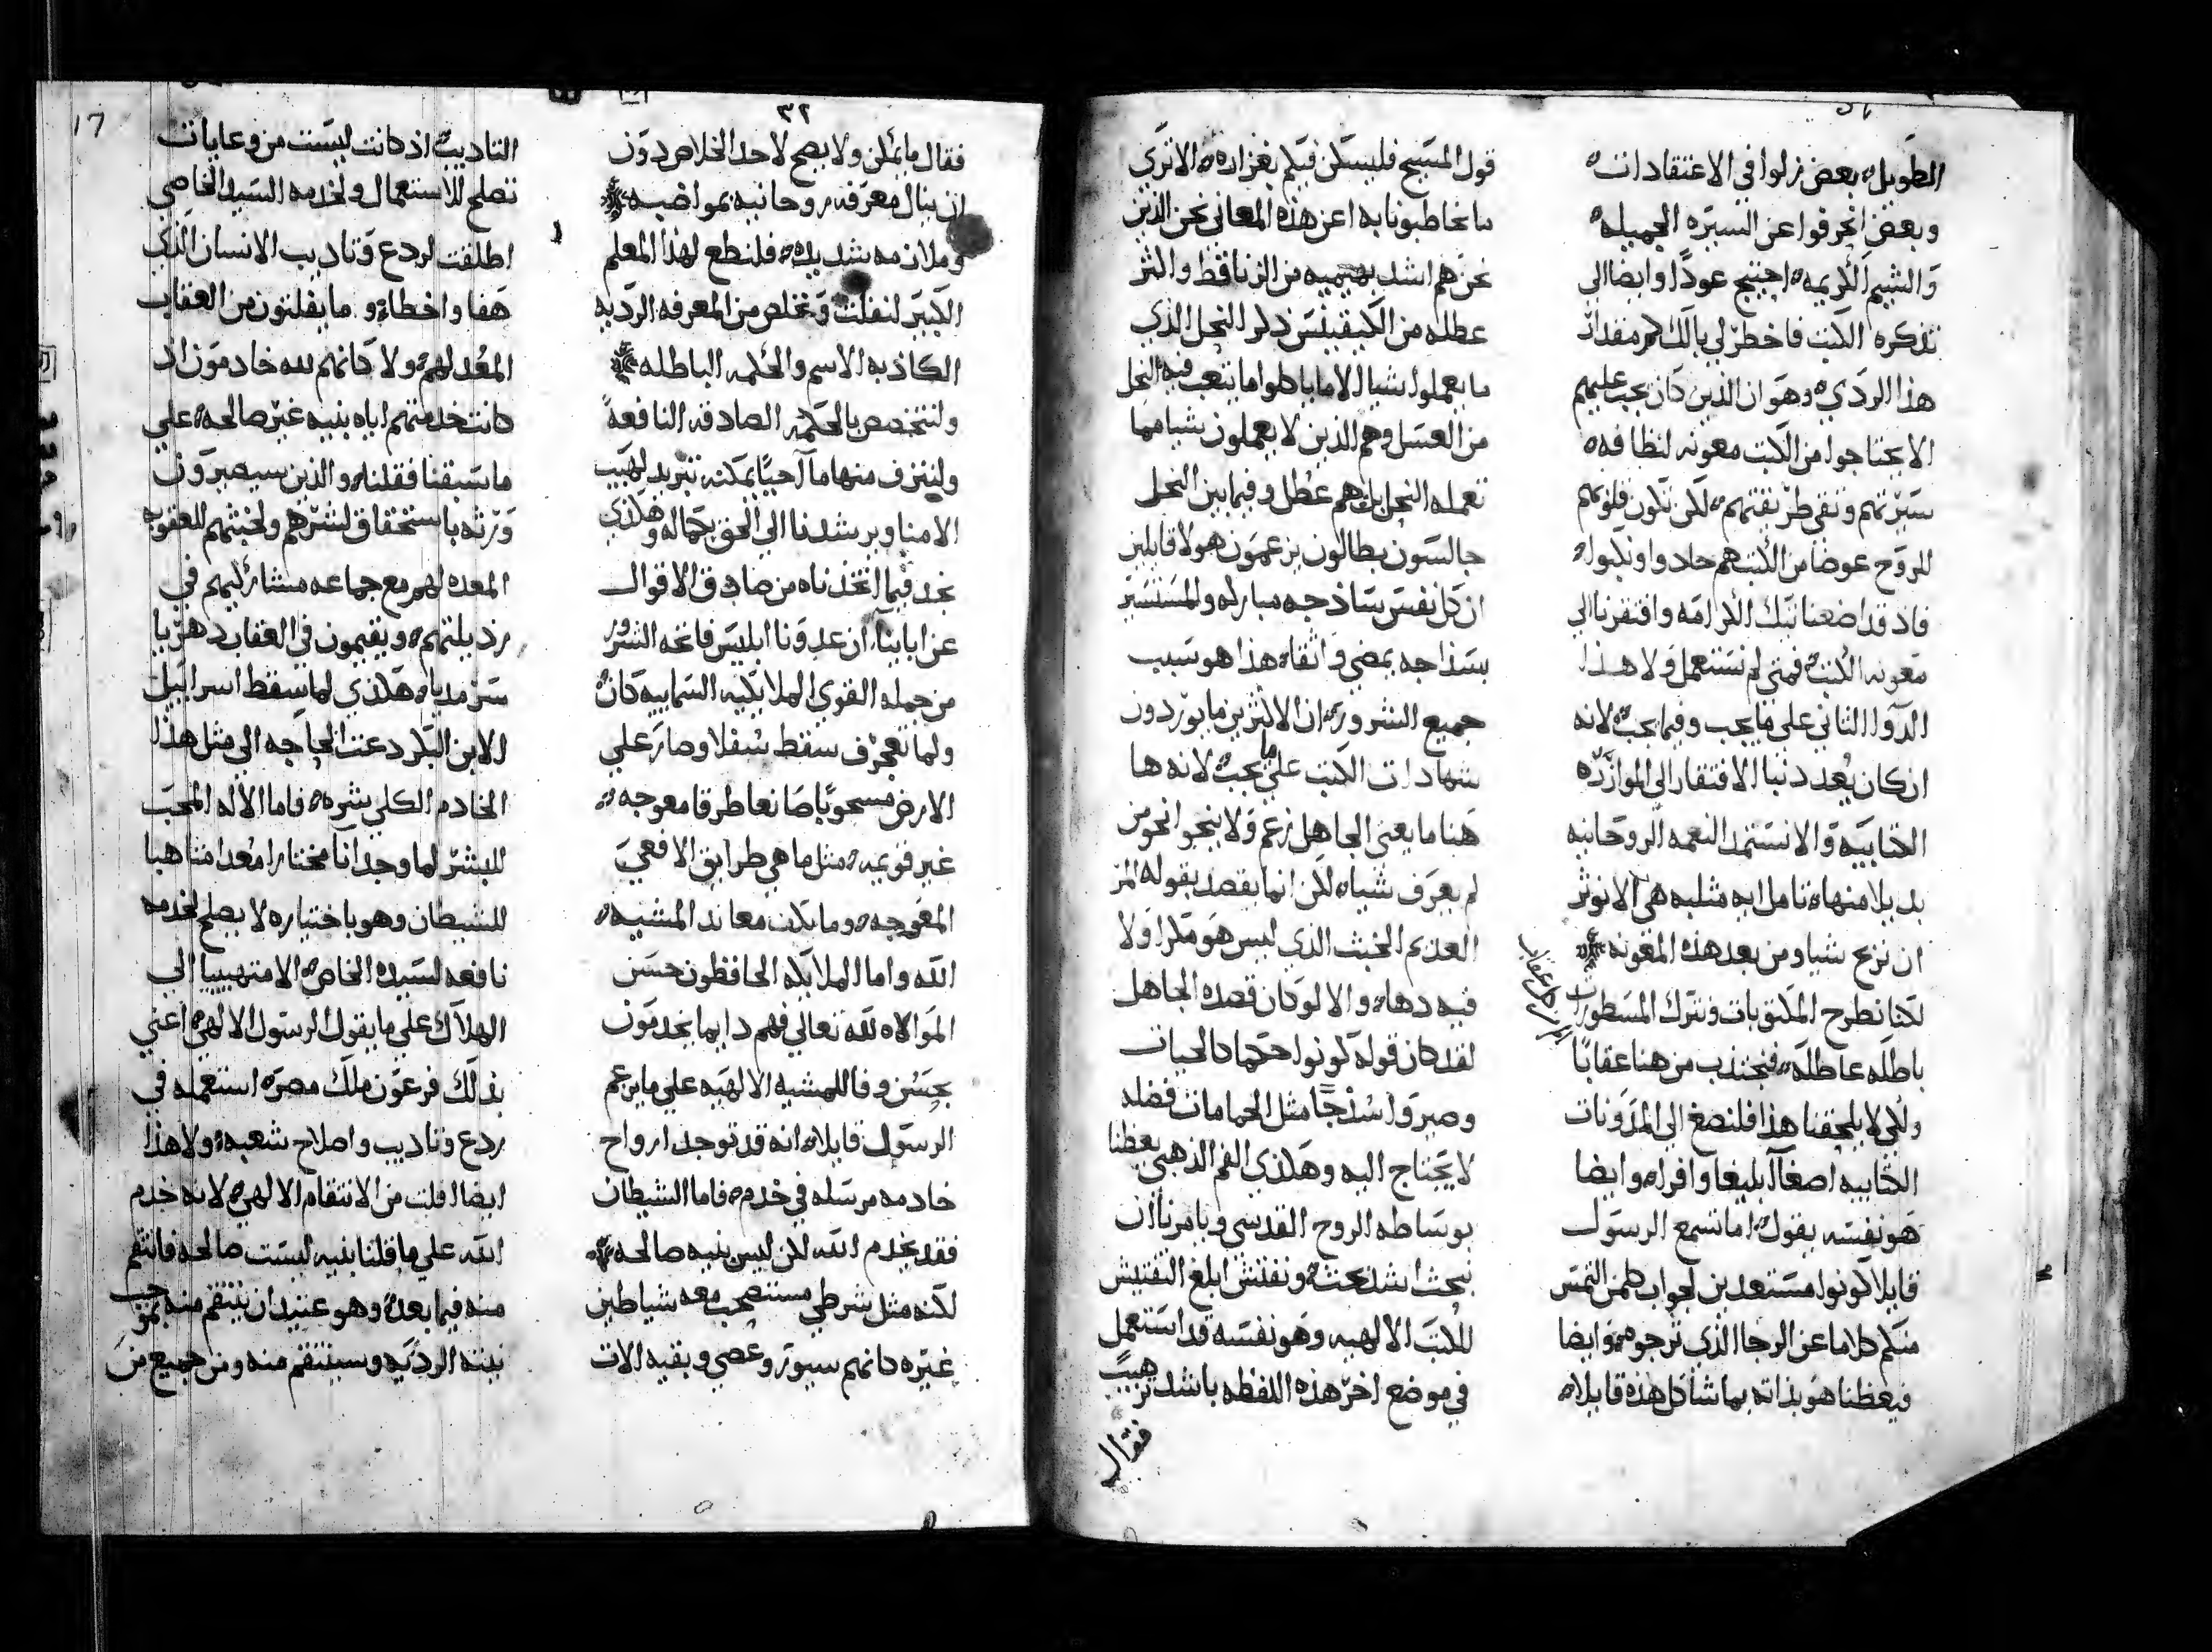 الطويل، بعض زلوا في الاعتقادات،
وبعض انحرفوا عن السيره الجميله،
والشيم الكريمه، احتيج عودًا وايضا الى
تذكره الكتب فاخطر لي بالك كم مقدار
هذا الردي، وهو ان الذين كان يجب عليهم
الا يحتاجوا من الكتب معونه لنظافه،
سيرتهم ونقي طريقتهم، لكن تكون قلوبهم
للروح عوضا من الكتب هم حادوا ونكبوا،
فاذ قد اضعنا تيك الكرامه وافتقرنا الي
معونه الكتب، فمتى لم نستعمل ولا هذا
الدوا الثاني على ما يجب وفيما يجب، لانه
ان كان يعد دنيا الافتقار الى الموازره
الكتابيه والا نستمد النعمه الروحانيه
بديلا منها، تامل ايه مثلبه هي الا نوثر
ان نربح شيا ومن بعد هذه المعونه،
لكنا نطرح المكتوبات ونترك المسطورات
باطله عاطله، فنجتذب من هنا عقابًا
ولكي لا يلحقنا هذا فلنصغ الى المدونات
الكتابيه اصغآ بليغا وافرا، وايضا
هو نفسه يقول، اما تسمع الرسول
قايلا كونوا مستعدين لجواب كل من التمس
منكم كلاما عن الرجا الذي ترجوه، وايضا
فيعظنا هو بذاته بما شاكل هذه قايلا،
قول المسيح فليسكن فيكم بغزاره، الا ترى
ما يخاطبونا به اعن هذه المعاني نحن الذين
نحن هم اشد بهيميه من الزناقط واكثر
عطله من الكيفينس ذكر النحل الذي
ما يعملوا شيا الا ما ياكلوا ما يتعب فيه النحل
من العسل وهم الذين لا يعملون شيا مما
تعمله النحل بل هم عطل وفيما بين النحل
جالسون بطالون يزعمون هولا قايلين
ان كل نفس ساذجه مباركه والمستسير
بسذاجه يمضي واثقا، هذا هو سبب
جميع الشرور، ان الاكثرين ما يوردون
شهادات الكتب على ما يجب، لانه ها
هنا ما يعني الجاهل زعم ولا ينحوا نحو من
لم يعرف شيا، لكن انما يقصد بقوله المر
العديم الخبث الذي ليس هو مكرا ولا
فيه دها، والا لو كان قصده الجاهل
لقد كان قوله كونوا حكما كالحيات
وصيروا سُذجًا مثل الحمامات فضله
لا يحتاج اليه وهكذي الفم الذهبي يعظنا
بوساطه الروح القدسي ويامرنا ان
نبحث اشد بحث، ونفتش ابلغ التفتيش
للكتب الالهيه وهو نفسه قد استعمل
في موضع اخر هذه اللفظه باشد ترهيب
فقال
٣٢
فقال ما يمكن ولا يصح لاحد الخلاص دون
ان ينال معرفه روحانيه بمواضبه
وملازمه شديده، فلنطع لهذا المعلم
الكبير لنفلت ونخلص من المعرفه الرديه
الكاذبه الاسم والحكمه الباطله
ولنتخصص بالحكمه الصادقه النافعه
ولننزف منها مآ احييًا يمكنه تبريد لهيب
الامنا ويرشدنا الى الحق بجماله وهكذي
نجد فيما اتخذناه من صادق الاقوال
عن ابابينا، ان عدونا ابليس فاتحه الشرور
من جمله القوى الملايكيه السماييه كان
ولما تعجرف سقط سفلا وصار علي
الارض مسحوبًا صانعا طرقا معوجه،
غير قويمه، مثل ما هي طرايق الافعي
المعوجه، وما بك معاند المشيه،
الله واما الملايكه الحافظون حسن
الموالاه لله تعالي فهم دايما يخدمون
بحسن وفا للمشيه الالهيه على ما يزعم
الرسول قايلا، انه قد توجد ارواح
خادمه مرسله في خدم، فاما الشيطان
فقد يخدم الله لكن ليس بنيه صالحه،
لكنه مثل شرطي مستصحب معه شياطين
غيره كانهم سيور وعصي وبقيه الات
17
التاديب، اذ كانت ليست من وعايات
تصلح للاستعمال ولخدمه السيد الخاصي
اطلقت لردع وتاديب الانسان الذي
هفا واخطا، وما يفلتون من العقاب
المعد لهم، ولا كانهم لله خادمون اذ
كانت خدمتهم اياه بنيه غير صالحه، علي
ما سبقنا فقلناه والذين سيصيرون
ورثه باستحقاق لشرهم ولخبثهم للعقوبه
المعده لهم مع جماعه مشاركيهم في
رذيلتهم، ويقيمون في العقاب دهريا
سرمديا، هكذي لما سقط اسراييل
الابن البكر دعت الحاجه الى مثل هذا
الخادم الكلي شره، فاما الاله المحب
للبشر لما وجد انآ مختارا معدا متاهبا
للشيطان وهو باختياره لا يصلح لخدمه
نافعه لسيده الخاص، الا متهييا الى
الهلاك على ما يقول الرسول الالهي، اعني
بذلك فرعون ملك مصر، استعمله في
ردع وتاديب واصلاح شعبه، ولا هذا
ايضا افلت من الانتقام الالهي، لانه خدم
الله على ما قلنا بنيه ليست صالحه فانتقم
منه فيما بعد، وهو عتيد ان ينتقم منه بموجب
نيته الرديه وسينتقم منه ومن جميع من